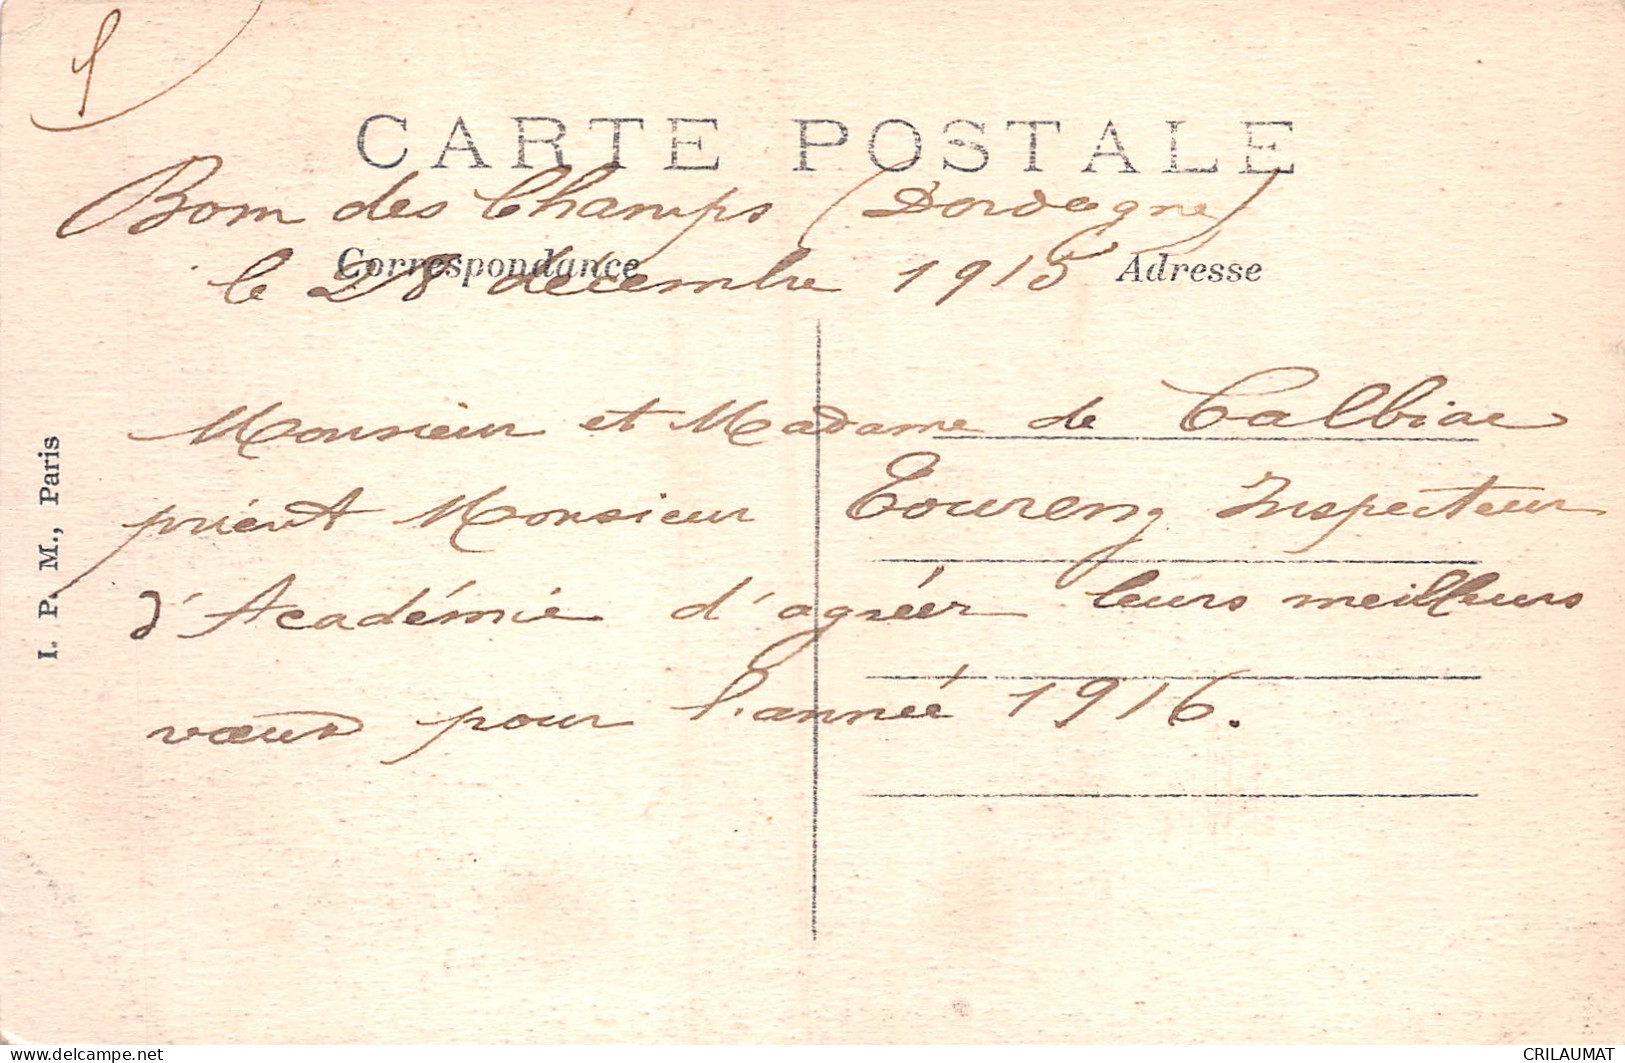 CARTE POSTALE
Bom des Champs (Dordogne)
Correspondance
Adresse
le 28 décembre 1915
Monsieur et Madame de Calbiac
prient Monsieur Toureng Inspecteur
d'Académie d'agréer leurs meilleurs
vœux pour l'année 1916.
I. P. M., Paris
www.delcampe.net
CRILAUMAT